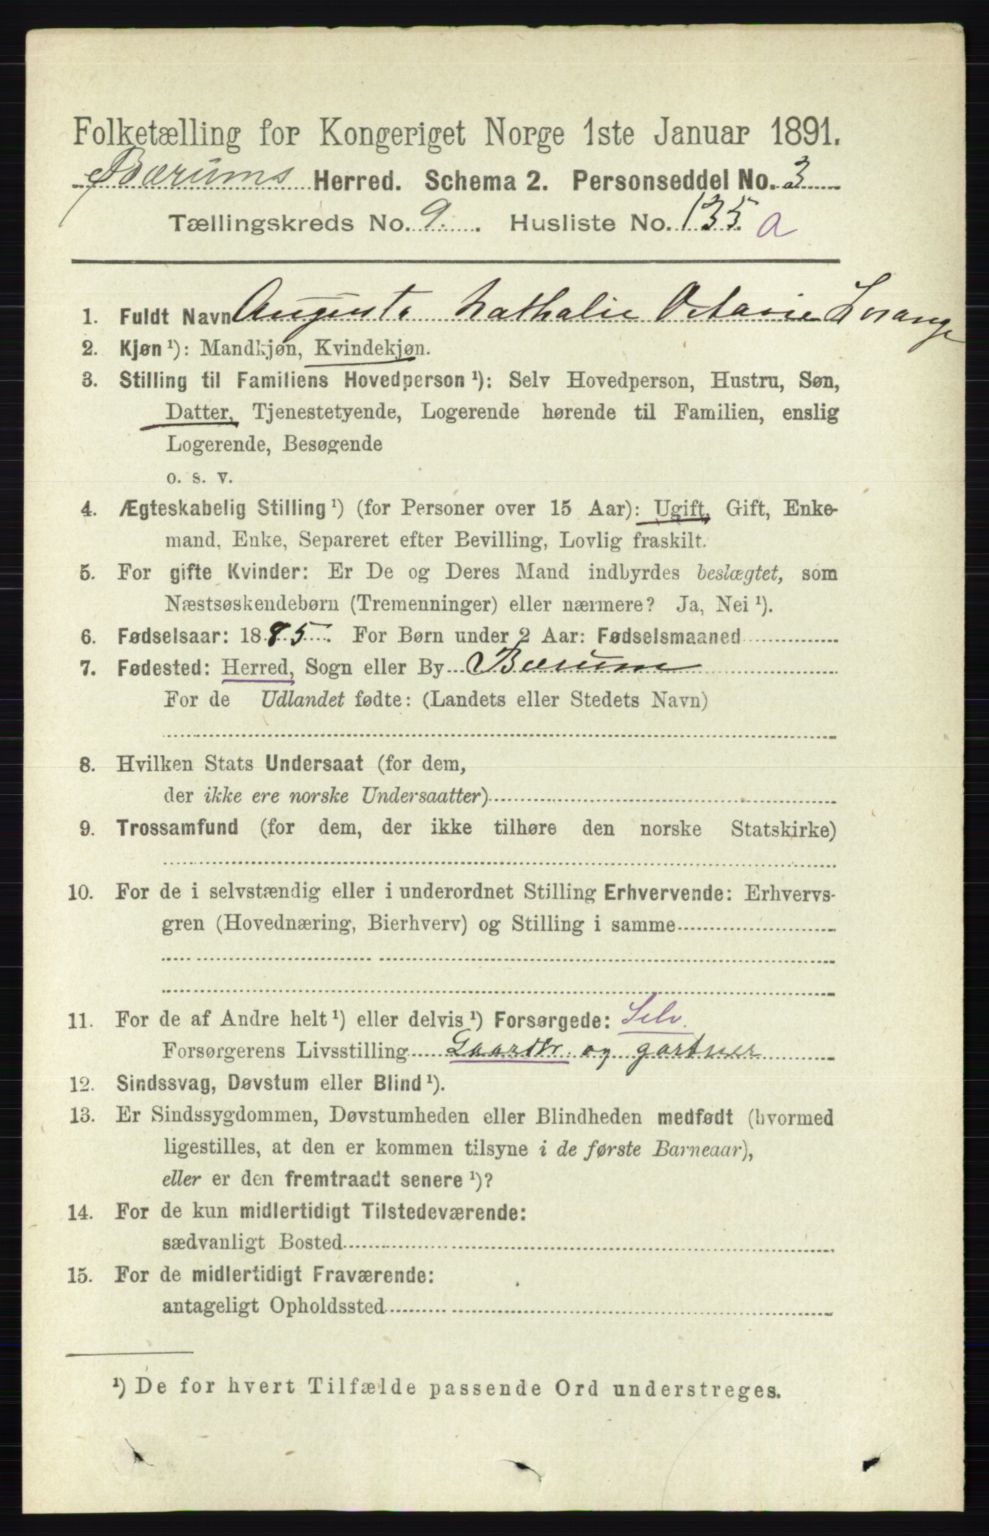 Folketælling for Kongeriget Norge 1ste Januar 1891.
Bærums Herred. Schema 2. Personseddel No. 3
Tællingskreds No. 9. Husliste No. 135 a
1. Fuldt Navn Auguste Nathalie Octavie Lorange
2. Kjøn ¹): Mandkjøn, Kvindekjøn.
3. Stilling til Familiens Hovedperson ¹): Selv Hovedperson, Hustru, Søn,
Datter, Tjenestetyende, Logerende hørende til Familien, enslig
Logerende, Besøgende
o. s. v.
4. Ægteskabelig Stilling ¹) (for Personer over 15 Aar): Ugift, Gift, Enke-
mand, Enke, Separeret efter Bevilling, Lovlig fraskilt.
5. For gifte Kvinder: Er De og Deres Mand indbyrdes beslægtet, som
Næstsøskendebørn (Tremenninger) eller nærmere? Ja, Nei ¹).
6. Fødselsaar: 1885. For Børn under 2 Aar: Fødselsmaaned
7. Fødested: Herred, Sogn eller By Bærum
For de Udlandet fødte: (Landets eller Stedets Navn)
8. Hvilken Stats Undersaat (for dem,
der ikke ere norske Undersaatter)
9. Trossamfund (for dem, der ikke tilhøre den norske Statskirke)
10. For de i selvstændig eller i underordnet Stilling Erhvervende: Erhvervs-
gren (Hovednæring, Bierhverv) og Stilling i samme
11. For de af Andre helt ¹) eller delvis ¹) Forsørgede: Selv.
Forsørgerens Livsstilling Gaardbr. og gartner
12. Sindssvag, Døvstum eller Blind ¹).
13. Er Sindssygdommen, Døvstumheden eller Blindheden medfødt (hvormed
ligestilles, at den er kommen tilsyne i de første Barneaar),
eller er den fremtraadt senere ¹)?
14. For de kun midlertidigt Tilstedeværende:
sædvanligt Bosted
15. For de midlertidigt Fraværende:
antageligt Opholdssted
¹) De for hvert Tilfælde passende Ord understreges.